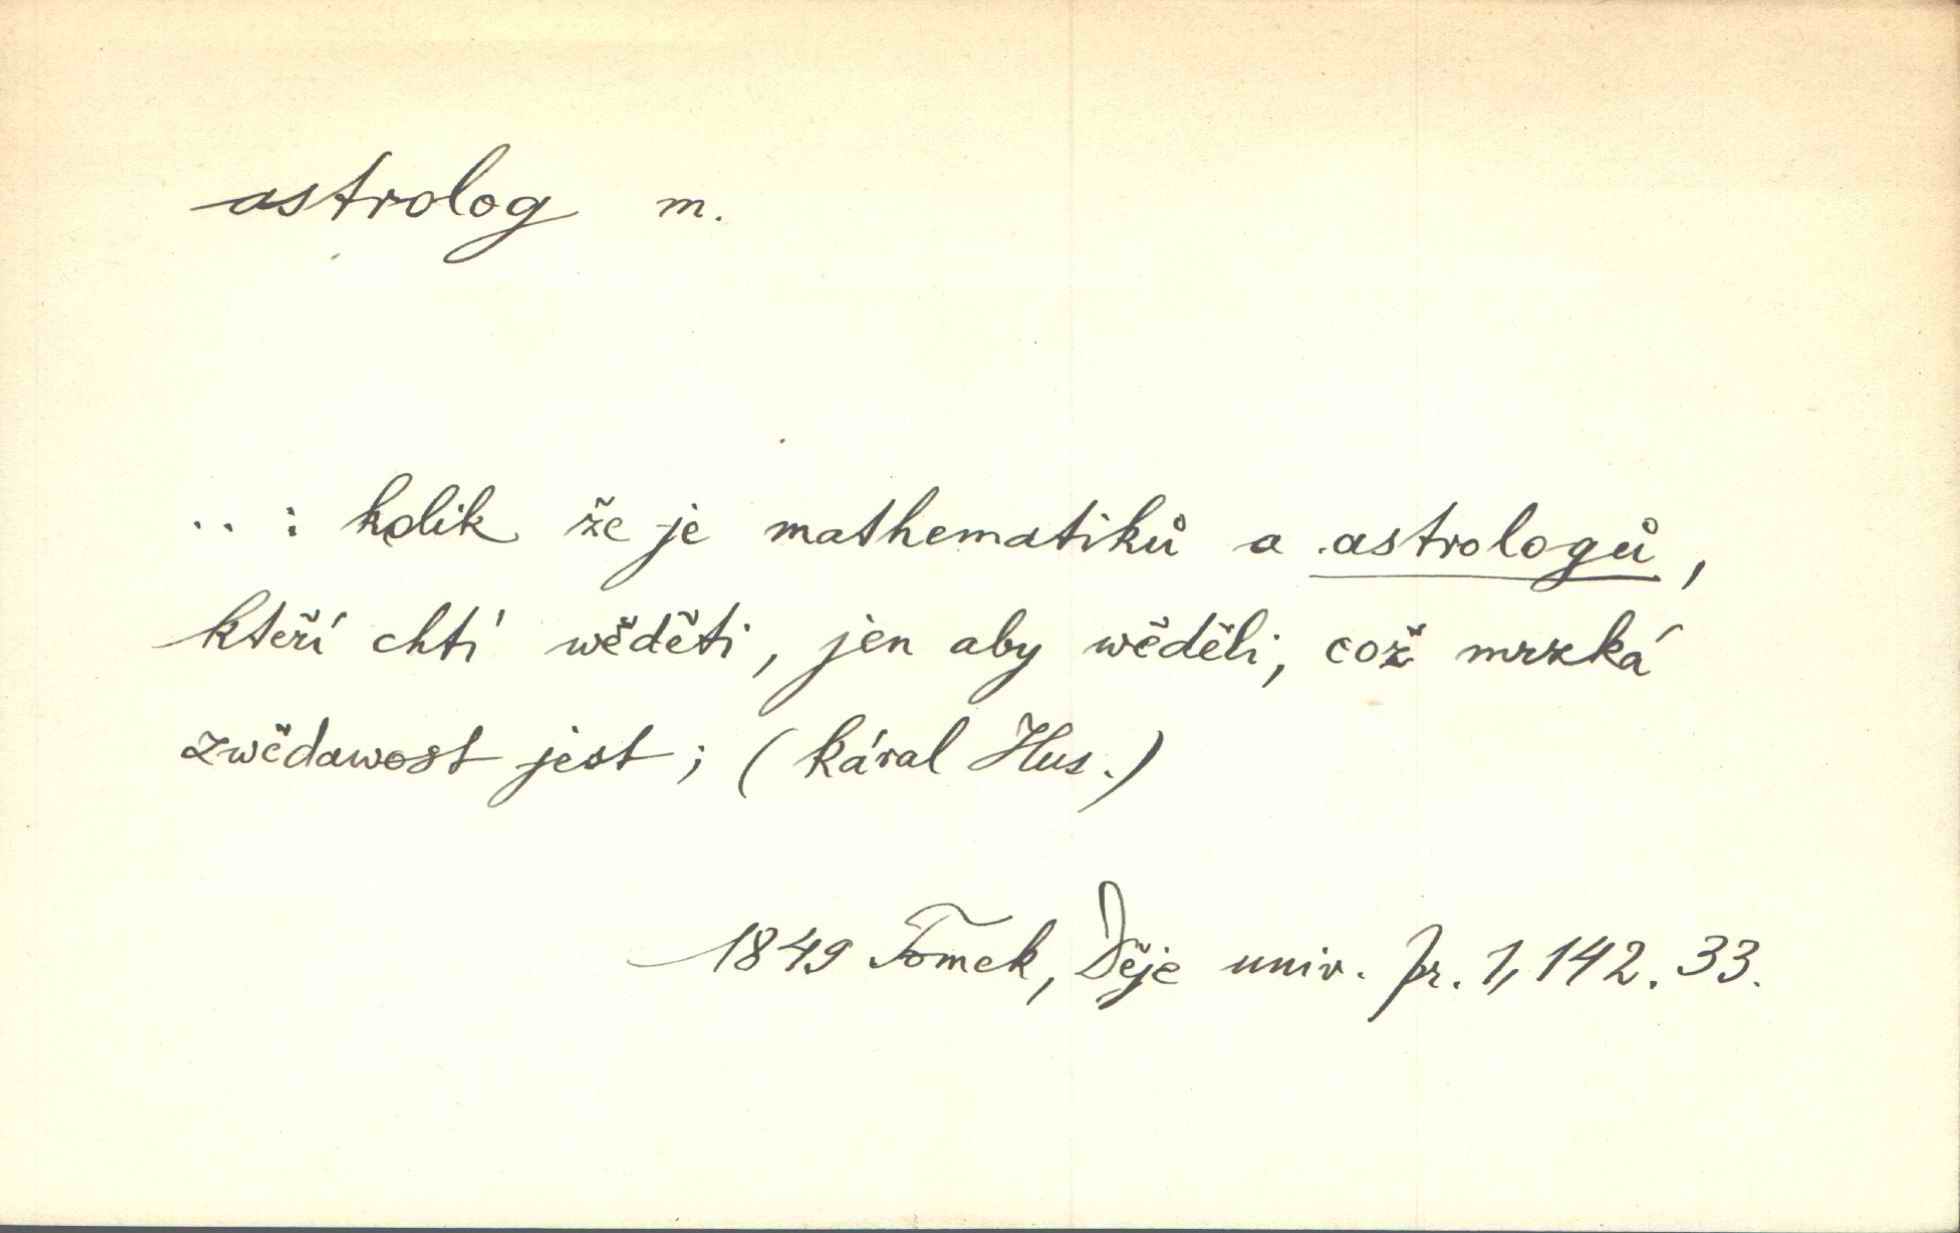 astrolog m.
..: kolik že je mathematiků a astrologů,
kteří chtí wěděti, jen aby wěděli, což mrzká
zwědawost jest; (káral Hus.)
1849 Tomek, Děje univ. pr. 1, 142. 33.